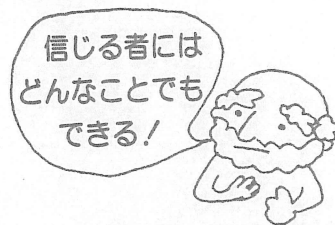 信じる者には
どんなことでも
できる！